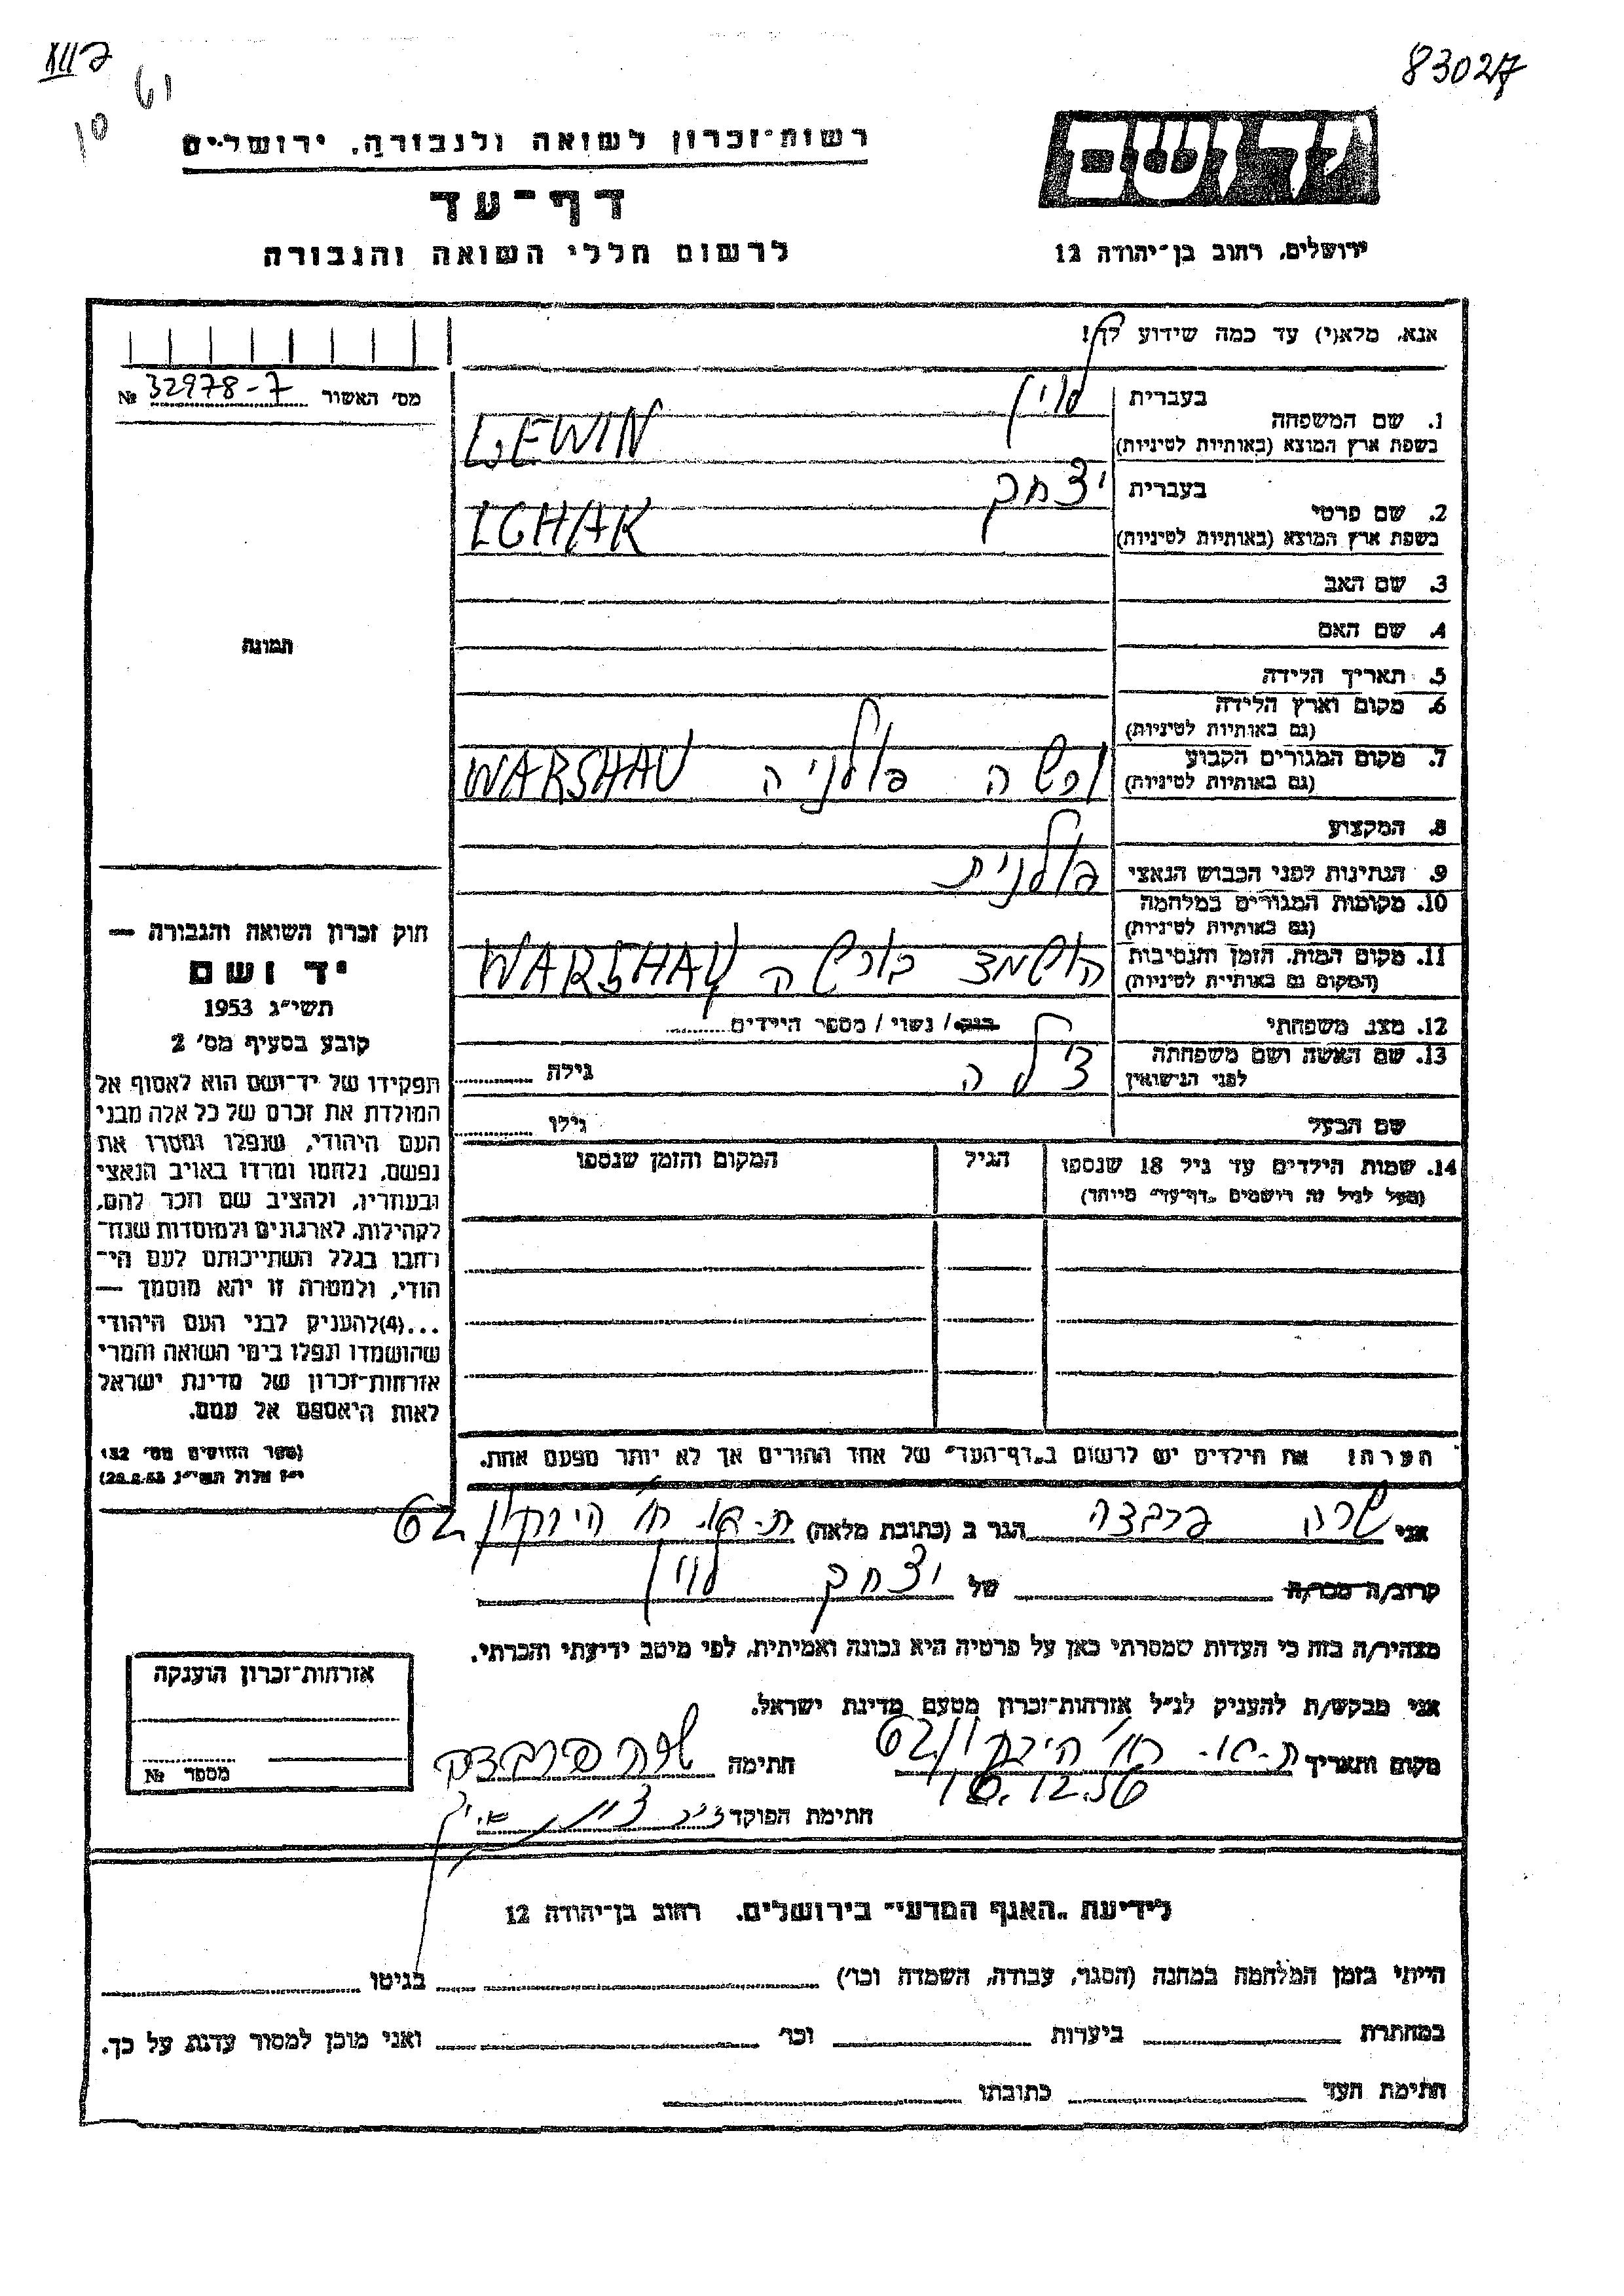 83027
רשות־זכרון לשואה ולגבורה, ירושלים
יד ושם
דף־עד
לרשום חללי השואה והגבורה
ירושלים, רחוב בן־יהודה 12
אנא, מלא(י) עד כמה שידוע לך!
מס׳ האשור 32978-7 №
1. שם המשפחה
בעברית לוין
בשפת ארץ המוצא (באותיות לטיניות) LEWIN
2. שם פרטי
בעברית יצחק
בשפת ארץ המוצא (באותיות לטיניות) ICHAK
3. שם האב
4. שם האם
5. תאריך הלידה
6. מקום וארץ הלידה
(גם באותיות לטיניות)
7. מקום המגורים הקבוע
(גם באותיות לטיניות) ורשה פולניה WARSHAU
8. המקצוע
9. הנתינות לפני הכבוש הנאצי פולנית
10. מקומות המגורים במלחמה
(גם באותיות לטיניות)
11. מקום המות, הזמן והנסיבות
(המקום גם באותיות לטיניות) הושמד בורשה WARSHAU
12. מצב משפחתי רווק / נשוי / מספר הילדים
13. שם האשה ושם משפחתה
לפני הנישואין צילה גילה
שם הבעל גילו
14. שמות הילדים עד גיל 18 שנספו
(מעל לגיל זה רושמים „דף־עד״ מיוחד)
הגיל
המקום והזמן שנספו
תמונה
חוק זכרון השואה והגבורה —
יד ושם
תשי״ג 1953
קובע בסעיף מס׳ 2
תפקידו של יד־ושם הוא לאסוף אל
המולדת את זכרם של כל אלה מבני
העם היהודי, שנפלו ומסרו את
נפשם, נלחמו ומרדו באויב הנאצי
ובעוזריו, ולהציב שם וזכר להם,
לקהילות, לארגונים ולמוסדות שנח־
רבו בגלל השתייכותם לעם הי־
הודי, ולמטרה זו יהא מוסמך —
...(4)להעניק לבני העם היהודי
שהושמדו ונפלו בימי השואה והמרי
אזרחות־זכרון של מדינת ישראל
לאות היאספם אל עמם.
(ספר החוקים מס׳ 132
י״ז אלול תשי״ג 28.8.53)
הערה: את הילדים יש לרשום ב„דף־העד״ של אחד ההורים אך לא יותר מפעם אחת.
אני שרה פרבדה הגר ב (כתובת מלאה) ת-א. רח׳ הירקון 62
קרוב/ה מכר/ה של יצחק לוין
מצהיר/ה בזה כי העדות שמסרתי כאן על פרטיה היא נכונה ואמיתית, לפי מיטב ידיעתי והכרתי.
אני מבקש/ת להעניק לנ״ל אזרחות־זכרון מטעם מדינת ישראל.
מקום ותאריך ת-א. רח׳ הירקון 62 חתימה
חתימת הפוקד
אזרחות־זכרון הוענקה
מספר №
לידיעת „האגף המדעי״ בירושלים, רחוב בן־יהודה 12
הייתי בזמן המלחמה במחנה (הסגר, עבודה, השמדה וכו׳) בגיטו
במחתרת ביערות וכו׳ ואני מוכן למסור עדות על כך.
חתימת העד כתובתו